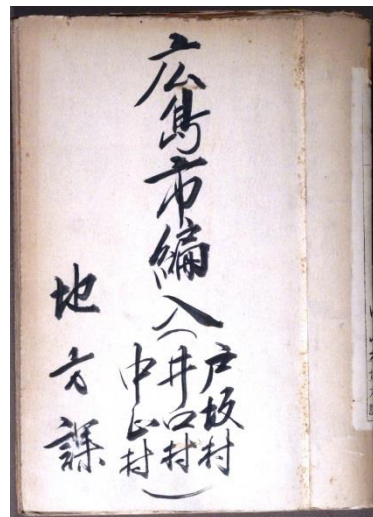 広島市編入(
戸坂村
井口村
中山村)
地方課